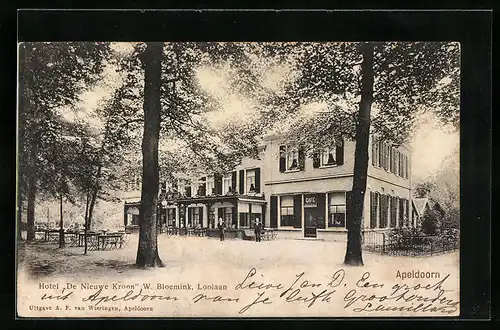 CAFE
Apeldoorn
Hotel „De Nieuwe Kroon" W. Bloemink, Loolaan
Lieve Jan D. Een groet
uit Apeldoorn van
Uitgave A. F. van Wieringen, Apeldoorn